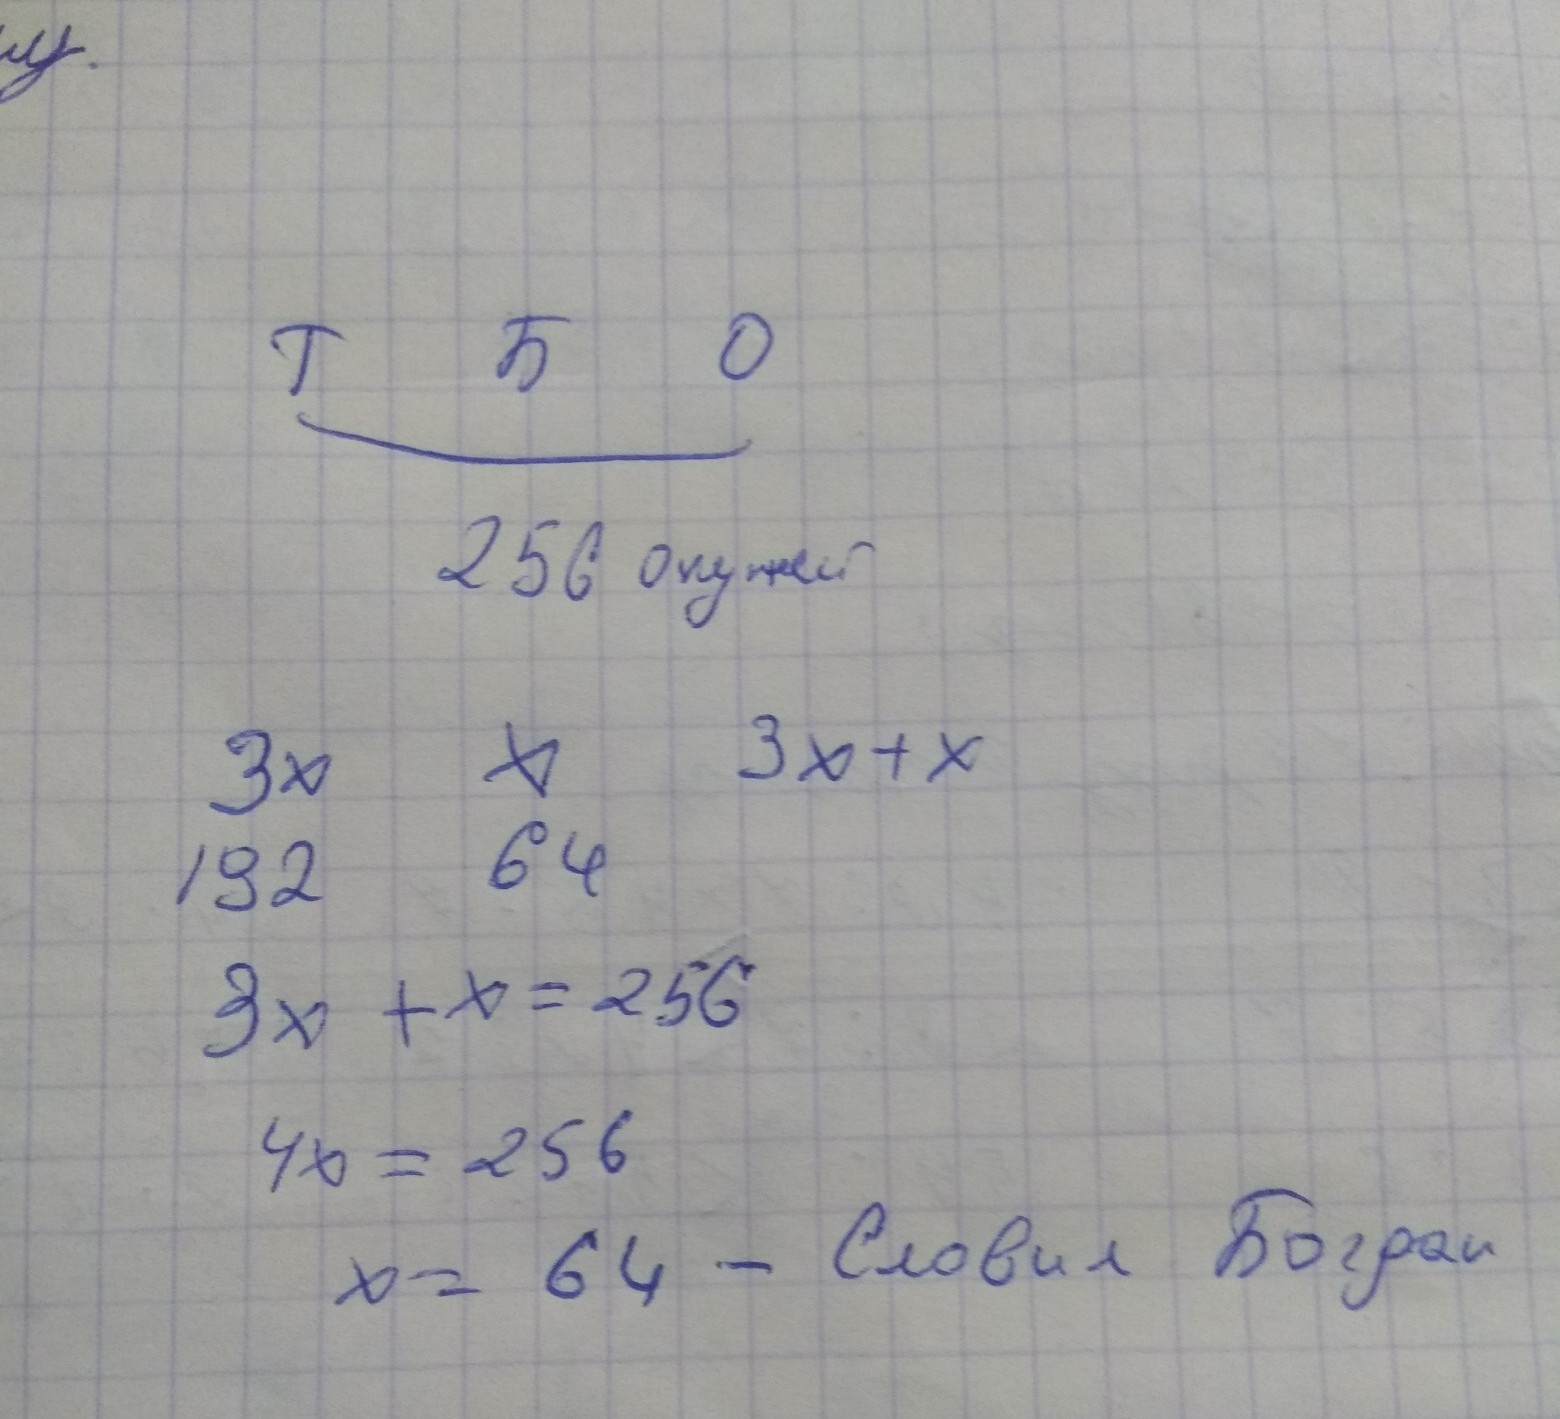 Т Б О
256 окужей
3x x 3x+x
192 64
3x + x = 256
4x = 256
x = 64 - Словил Богдан